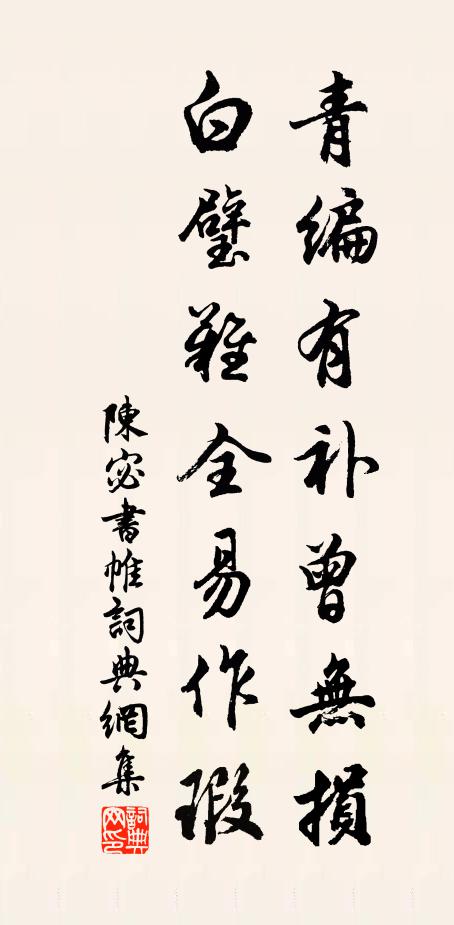 青编有补曾無損
白璧難全易作瑕
陳宓書帷詞典網集
詞典网印